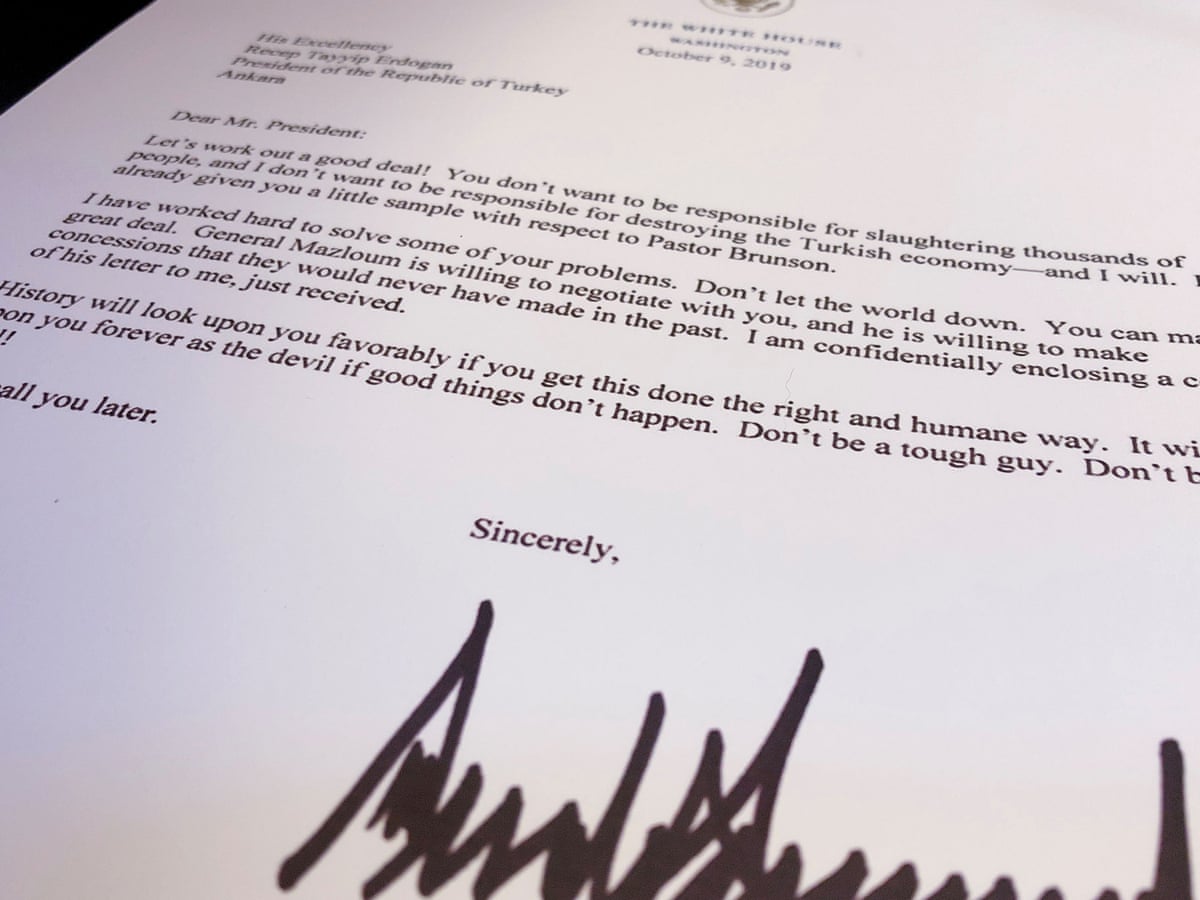 THE WHITE HOUSE
WASHINGTON
October 9, 2019
His Excellency
Recep Tayyip Erdogan
President of the Republic of Turkey
Ankara
Dear Mr. President:
Let's work out a good deal! You don't want to be responsible for slaughtering thousands of
people, and I don't want to be responsible for destroying the Turkish economy—and I will.
already given you a little sample with respect to Pastor Brunson.
I have worked hard to solve some of your problems. Don't let the world down. You can ma
great deal. General Mazloum is willing to negotiate with you, and he is willing to make
concessions that they would never have made in the past. I am confidentially enclosing a c
of his letter to me, just received.
History will look upon you favorably if you get this done the right and humane way. It wi
pon you forever as the devil if good things don't happen. Don't be a tough guy. Don't b
!
all you later.
Sincerely,